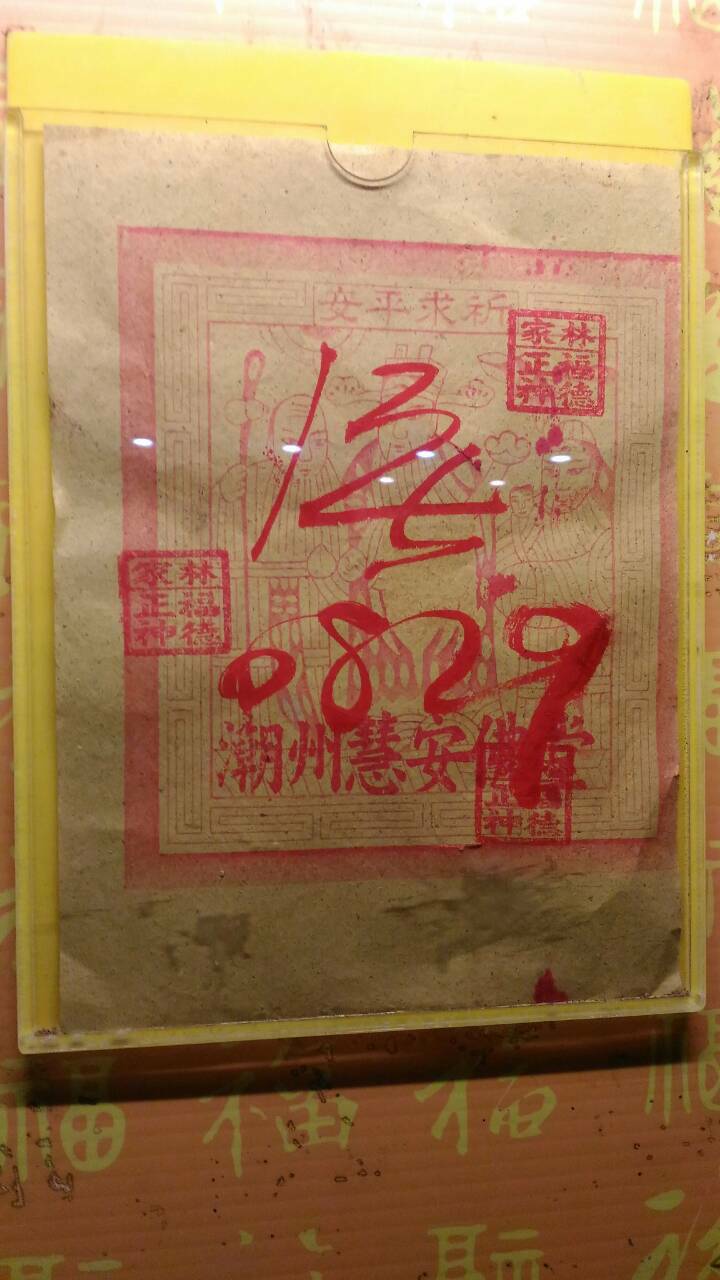 祈求平安
林家福德正神
林家福德正神
0829
潮州慧安佛堂
福德正神
福
福
福
福
福